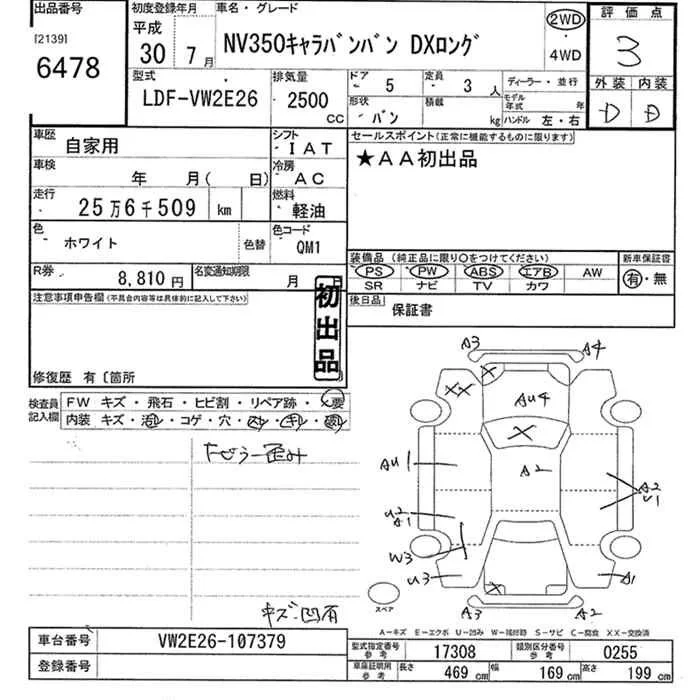 出品番号
[2139]
6478
初度登録年月
平成
30 7月
車名・グレード
NV350キャラバンバン DXロング
2WD
4WD
評価点
3
外装 内装
D D
型式
LDF-VW2E26
排気量
2500
CC
ドア
5
定員
3人
形状
バン
積載
kg
ディーラー・並行
モデル年式 年
ハンドル 左・右
車歴
自家用
シフト
IAT
車検
年 月( 日)
冷房
AC
走行
25万6千509 km
燃料
軽油
色
ホワイト
色替
色コード
QM1
R券
8,810円
名変通知期限
月 日
セールスポイント(正常に機能するものに限ります)
★AA初出品
装備品(純正品に限り○をつけてください)
PS PW ABS エアB AW
SR ナビ TV カワ
新車保証書
有・無
後日品
保証書
注意事項申告欄(不具合内容等は具体的に記入して下さい)
初出品
修復歴 有〔箇所
検査員
記入欄
FW キズ・飛石・ヒビ割・リペア跡・要
内装 キズ・汚レ・コゲ・穴
キズ凹有
A3
A4
AU4
AU1
A2
A2
U1
U2
A1
W3
U3
A1
A3
A2
スペア
A-キズ E-エクボ U-凹み W-補修跡 S-サビ C-腐食 XX-交換済
車台番号
VW2E26-107379
登録番号
型式指定番号
参考
17308
類別区分番号
参考
0255
車庫証明用
参考
長さ 469cm 幅 169cm 高さ 199cm